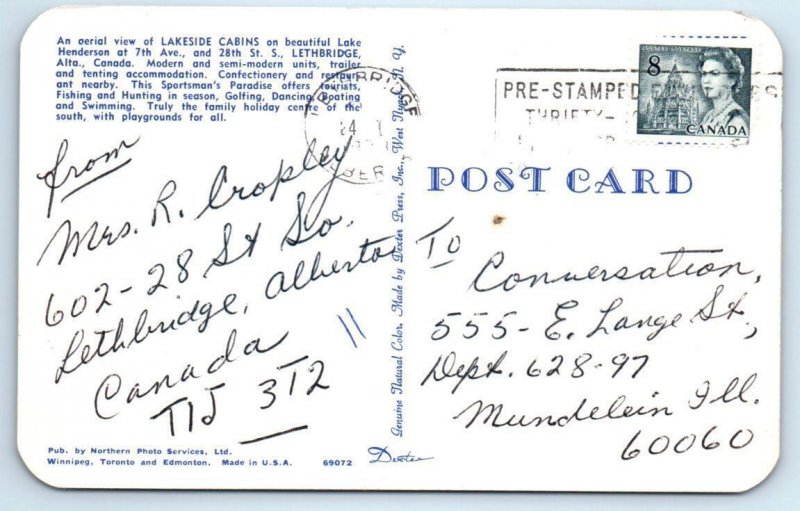 An aerial view of LAKESIDE CABINS on beautiful Lake
Henderson at 7th Ave., and 28th St. S., LETHBRIDGE,
Alta., Canada. Modern and semi-modern units, trailer
and tenting accommodation. Confectionery and restaur-
ant nearby. This Sportsman's Paradise offers tourists,
Fishing and Hunting in season, Golfing, Dancing, Boating
and Swimming. Truly the family holiday centre of the
south, with playgrounds for all.
from
Mrs. R. Cropley
602-28 St So.
Lethbridge, Alberta
Canada
T1J 3T2
11
Pub. by Northern Photo Services, Ltd.
Winnipeg, Toronto and Edmonton. Made in U.S.A. 69072
Dexter
Genuine Natural Color. Made by Dexter Press, Inc., West Nyack, N. Y.
LETHBRIDGE
PRE-STAMPED
THRIFTY-
8
CANADA
POST CARD
To
Conversation,
555- E. Lange St,
Dept. 628-97
Mundelein Ill.
60060